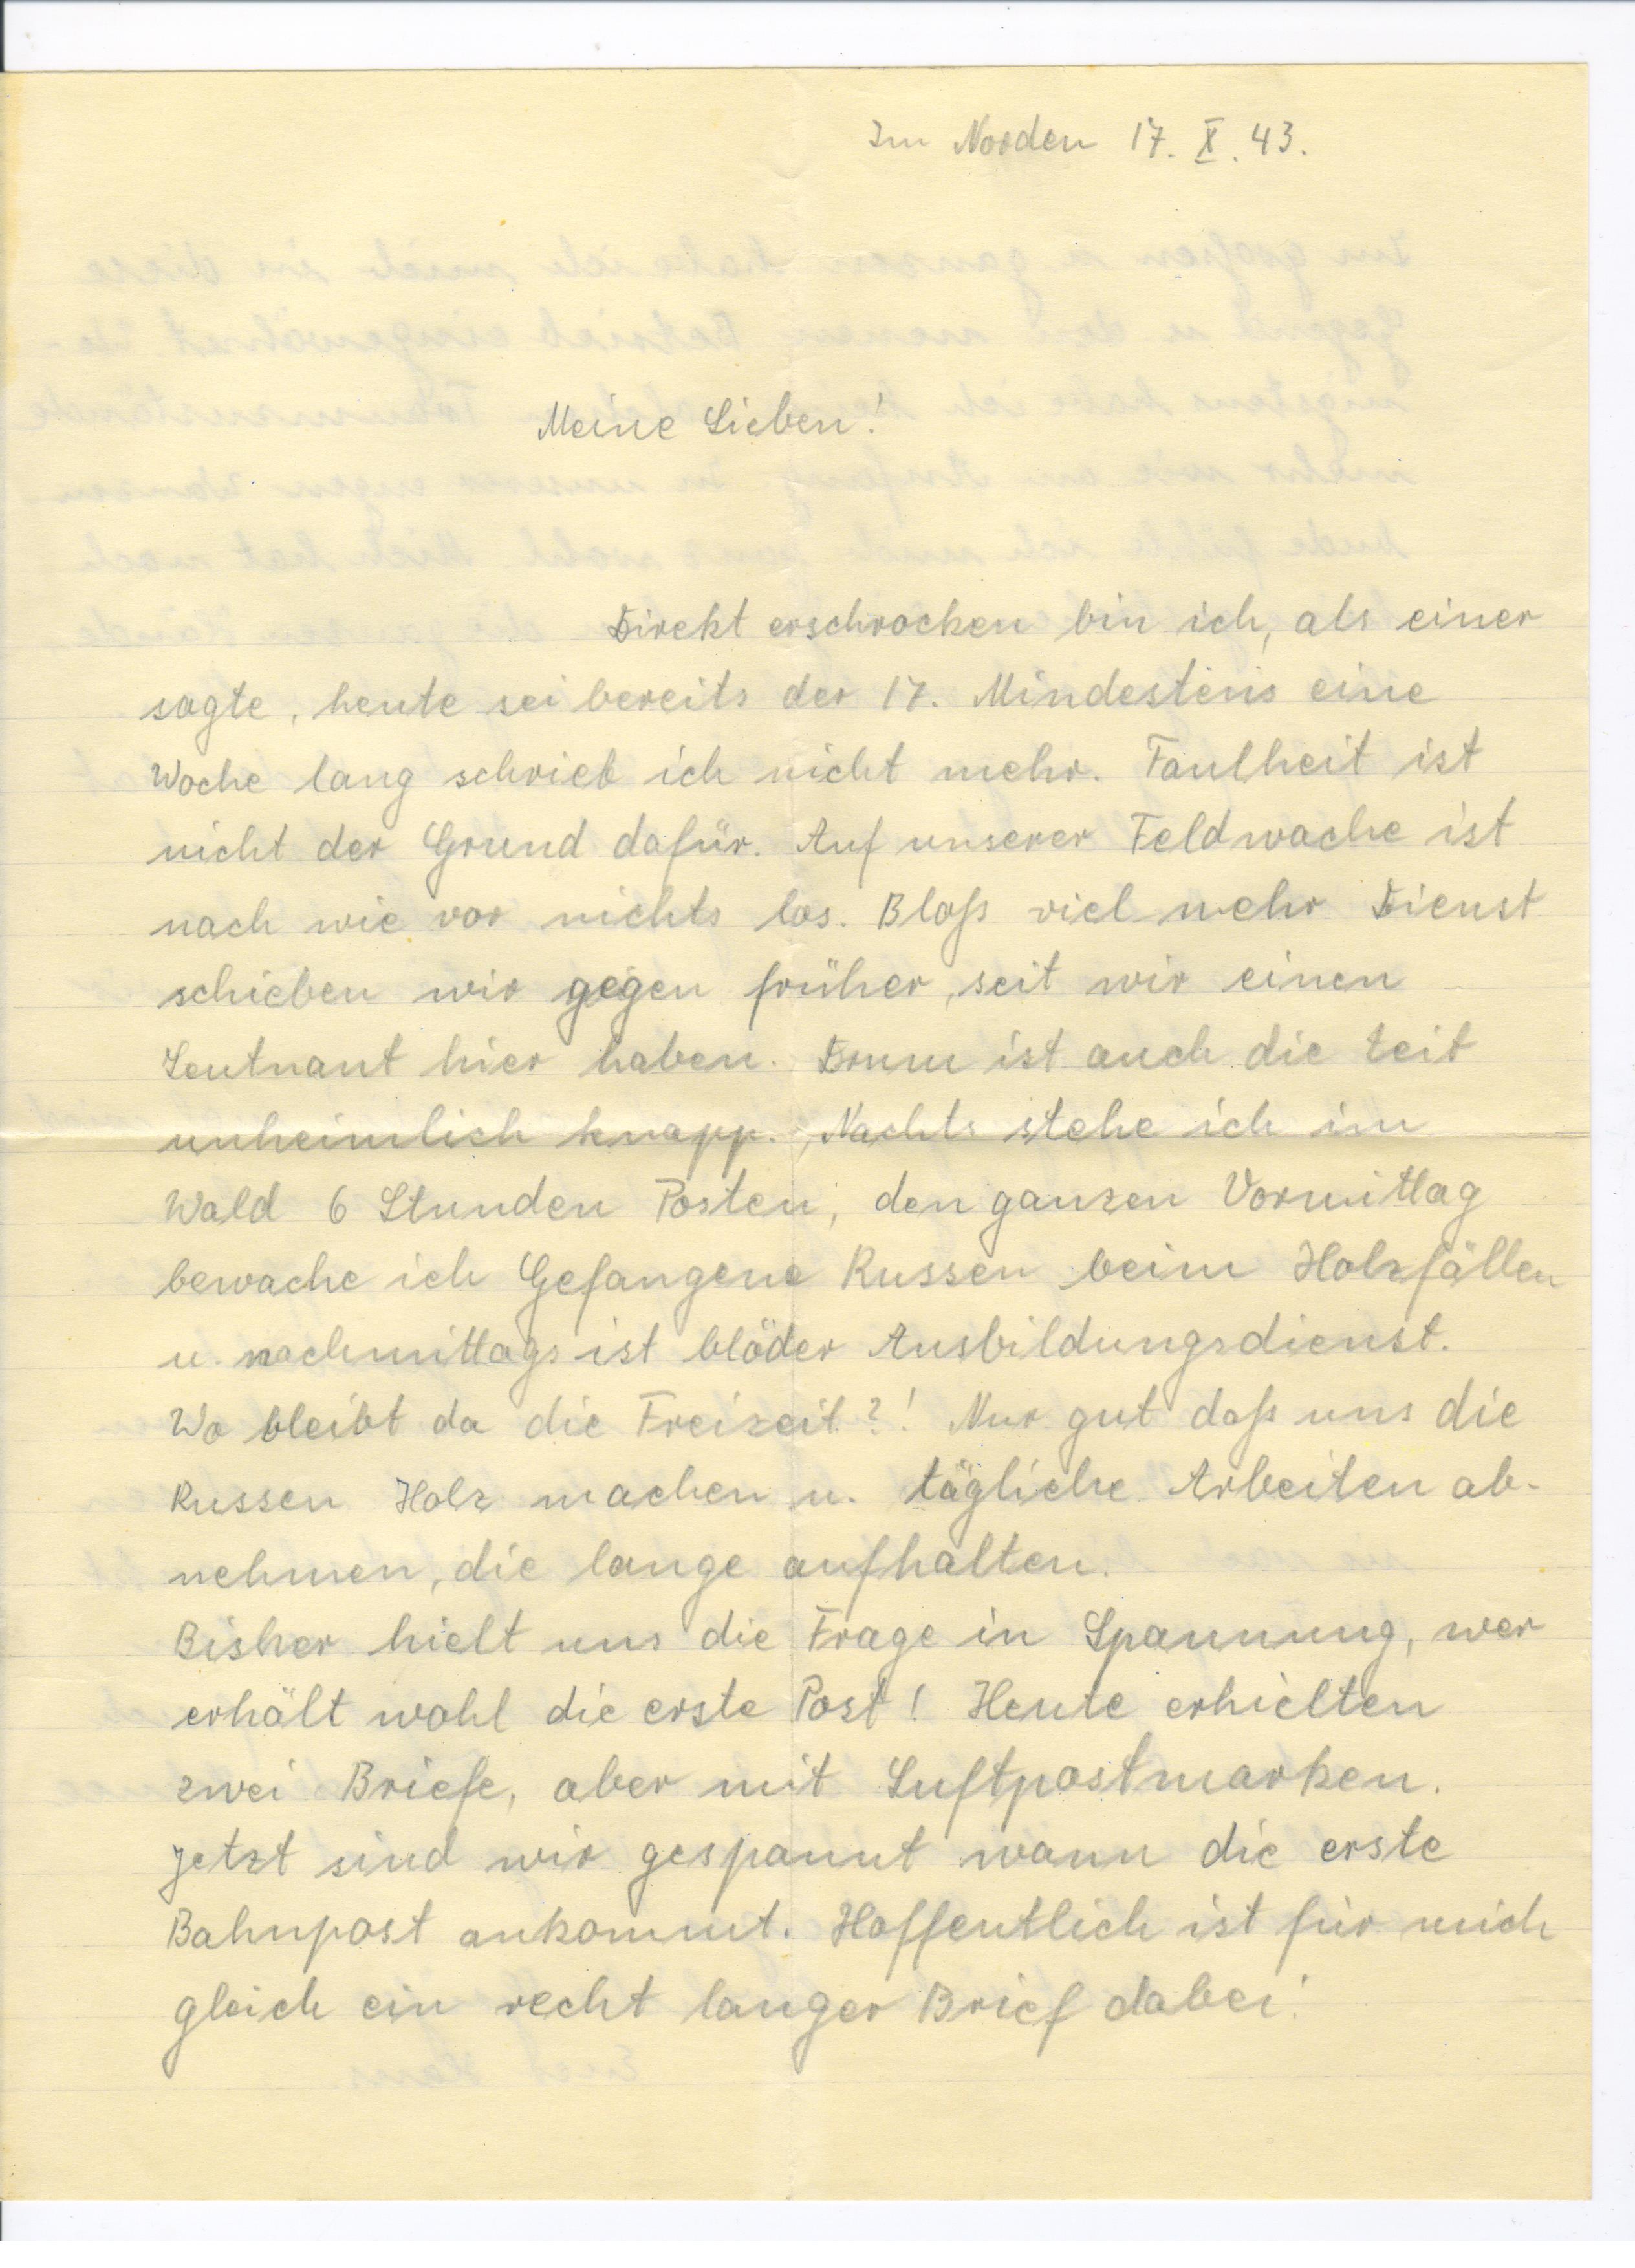 Im Norden 17. X. 43.
Meine Lieben!
Direkt erschrocken bin ich, als einer
sagte, heute sei bereits der 17. Mindestens eine
Woche lang schrieb ich nicht mehr. Faulheit ist
nicht der Grund dafür. Auf unserer Feldwache ist
nach wie vor nichts los. Bloß viel mehr Dienst
schieben wir gegen früher, seit wir einen
Leutnant hier haben. Drum ist auch die Zeit
unheimlich knapp. Nachts stehe ich im
Wald 6 Stunden Posten, den ganzen Vormittag
bewache ich Gefangene Russen beim Holzfällen
u. nachmittags ist blöder Ausbildungsdienst.
Wo bleibt da die Freizeit?! Nur gut daß uns die
Russen Holz machen u. tägliche Arbeiten ab-
nehmen, die lange aufhalten.
Bisher hielt uns die Frage in Spannung, wer
erhält wohl die erste Post! Heute erhielten
zwei Briefe, aber mit Luftpostmarken.
Jetzt sind wir gespannt wann die erste
Bahnpost ankommt. Hoffentlich ist für mich
gleich ein recht langer Brief dabei!